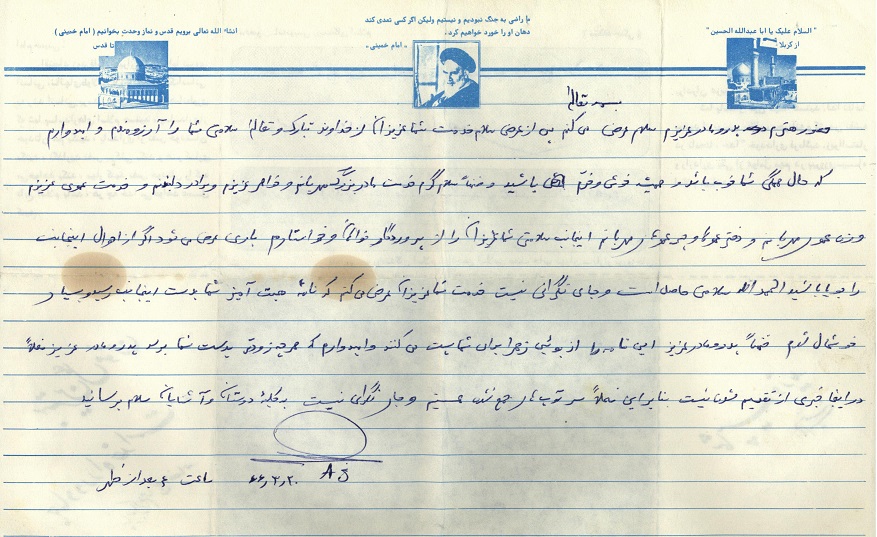 "السلام علیک یا ابا عبدالله الحسین"
از کربلا
ما راضی به جنگ نبودیم و نیستیم ولیکن اگر کسی تعدی کند
دهان او را خورد خواهیم کرد.
« امام خمینی »
انشاء الله تعالی برویم قدس و نماز وحدت بخوانیم ( امام خمینی )
تا قدس
بسمه تعالی
حضور محترم پدر و مادر عزیزم سلام عرض می کنم پس از عرض سلام خدمت شما عزیزان از خداوند تبارک و تعالی سلامتی شما را آرزومندم و امیدوارم
که حال همگی شما خوب باشد و همیشه خوش و خرم باشید و ضمناً سلام گرم خدمت مادر بزرگ مهربانم و خواهر عزیزم و برادر دلبندم و خدمت عموی عزیزم
وزن عموی مهربانم و دختر عموها و پسر عموهای مهربانم اینجانب سلامتی شما عزیزان را از پروردگار خواهان و خواستارم باری عرض می شود اگر از احوال اینجانب
را جویا باشید الحمدالله سلامتی حاصل است و جای نگرانی نیست خدمت شما عزیزان عرض می کنم که نامه محبت آمیز شما بدست اینجانب رسید و بسیار
خوشحال شدم ضمناً پدر و مادر عزیز این نامه را از بوئین زهرا برای شما پست می کنند و امیدوارم که هر چه زودتر بدست شما برسد پدر و مادر عزیز فعلاً
در اینجا خبری از تقسیم شدن نیست بنابراین فعلاً سر توپ ها جمع شدن هستیم و جای نگرانی نیست به کلیه دوستان و آشنایان سلام برسانید
A
۶۶,۳,۲۰ ساعت ۴ بعد از ظهر